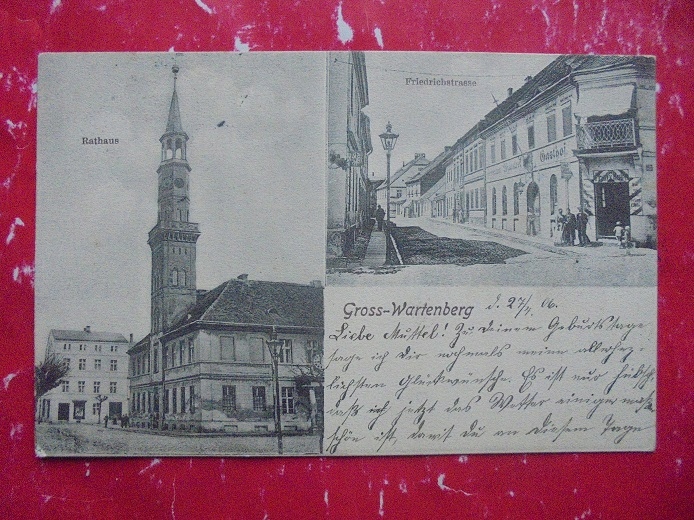 Rathaus
Friedrichstrasse
Gasthof
Gross-Wartenberg d. 27/7. 06.
Liebe Muttel! Zu deinem Geburtstage
sage ich dir nochmals meine allerherz-
lichsten Glückwünsche. Es ist nur hübsch,
daß ich jetzt das Wetter einigermaßen
schön ist, damit du an diesem Tage